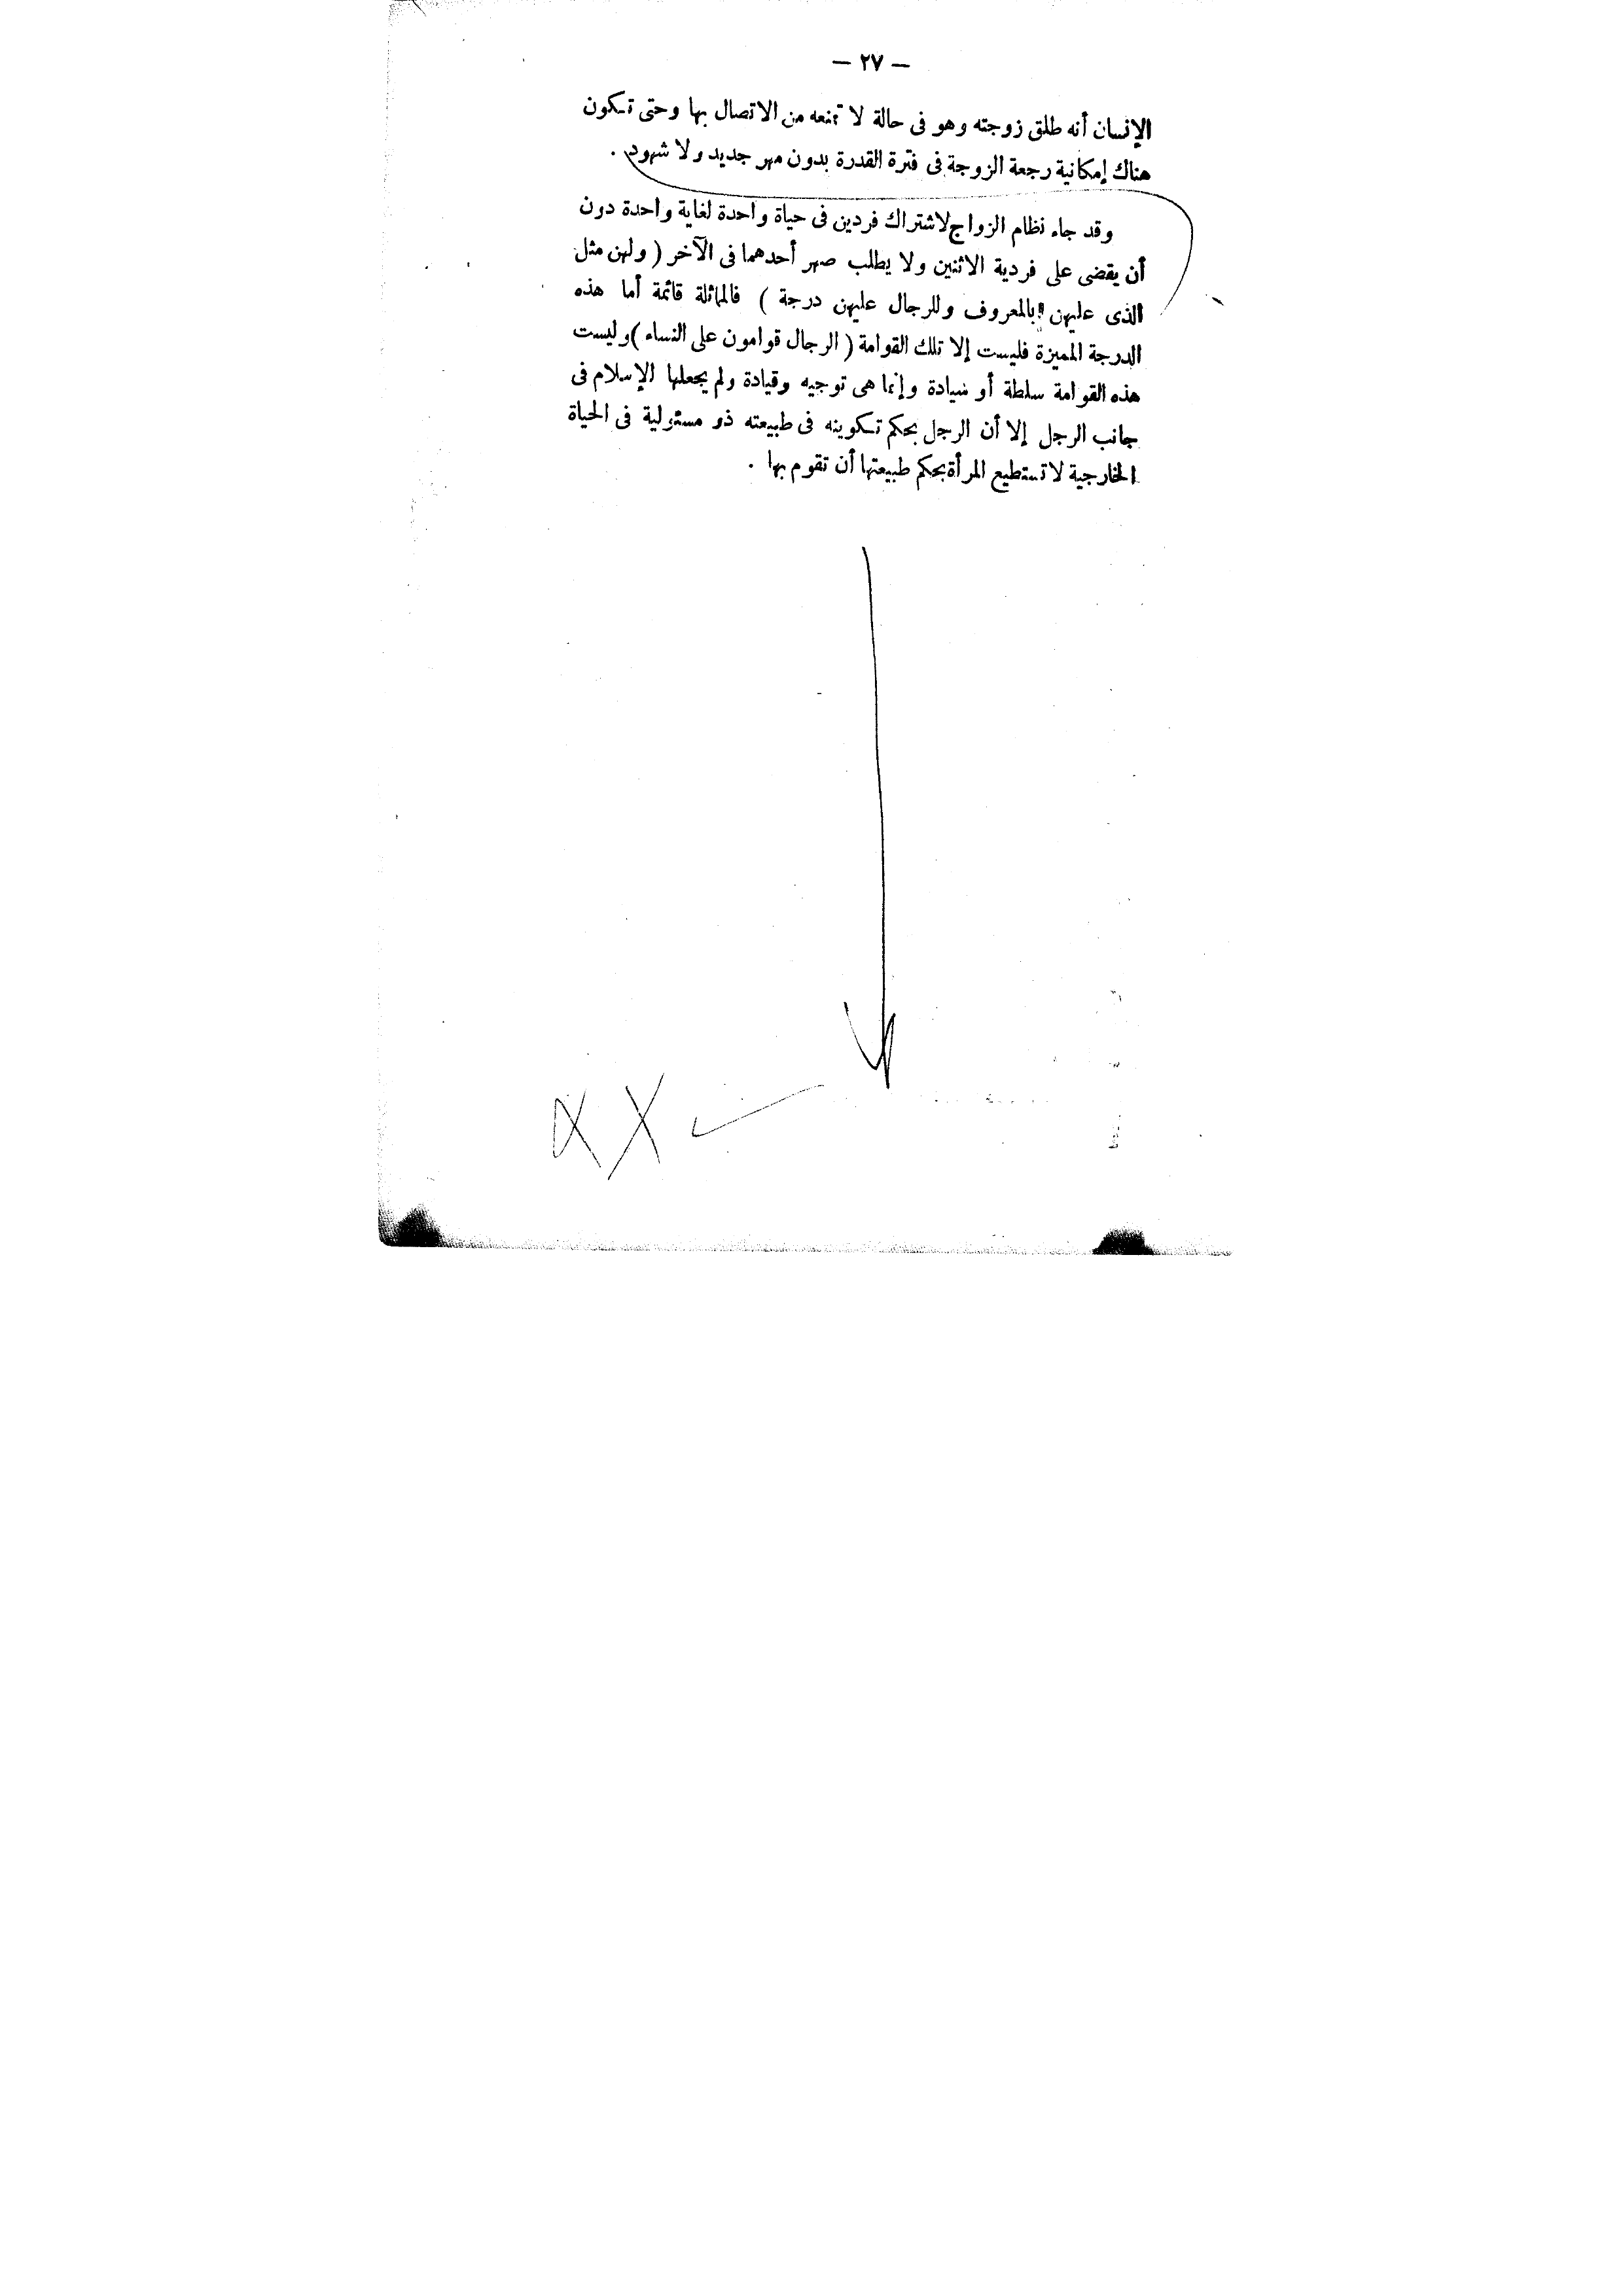 — ٢٧ —
الإنسان أنه طلق زوجته وهو فى حالة لا تمنعه من الاتصال بها وحتى تكون
هناك إمكانية رجعة الزوجة فى فترة القدرة بدون مهر جديد ولا شهود .
وقد جاء نظام الزواج لاشتراك فردين فى حياة واحدة لغاية واحدة دون
أن يقضى على فردية الاثنين ولا يطلب صهر أحدهما فى الآخر ( ولهن مثل
الذى عليهن بالمعروف وللرجال عليهن درجة ) فالماثلة قائمة أما هذه
الدرجة المميزة فليست إلا تلك القوامة ( الرجال قوامون على النساء ) وليست
هذه القوامة سلطة أو سيادة وإنما هى توجيه وقيادة ولم يجعلها الإسلام فى
جانب الرجل إلا أن الرجل بحكم تكوينه فى طبيعته ذو مسئولية فى الحياة
الخارجية لا تستطيع المرأة بحكم طبيعتها أن تقوم بها .